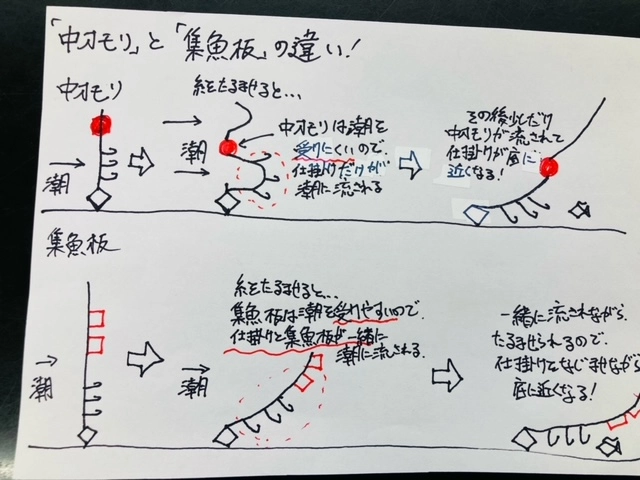 「中オモリ」と「集魚板」の違い!
中オモリ
潮
糸をたるませると...
潮
中オモリは潮を
受けにくいので、
仕掛けだけが
潮に流される
その後少しだけ
中オモリが流されて
仕掛けが底に
近くなる!
集魚板
潮
糸をたるませると...
集魚板は潮を受けやすいので、
仕掛けと集魚板が一緒に
潮に流される。
潮
一緒に流されながら、
たるませられるので、
仕掛けをなじませながら
底に近くなる!